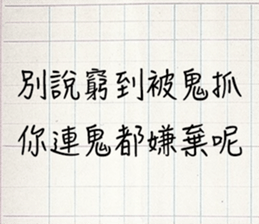 別說窮到被鬼抓
你連鬼都嫌棄呢